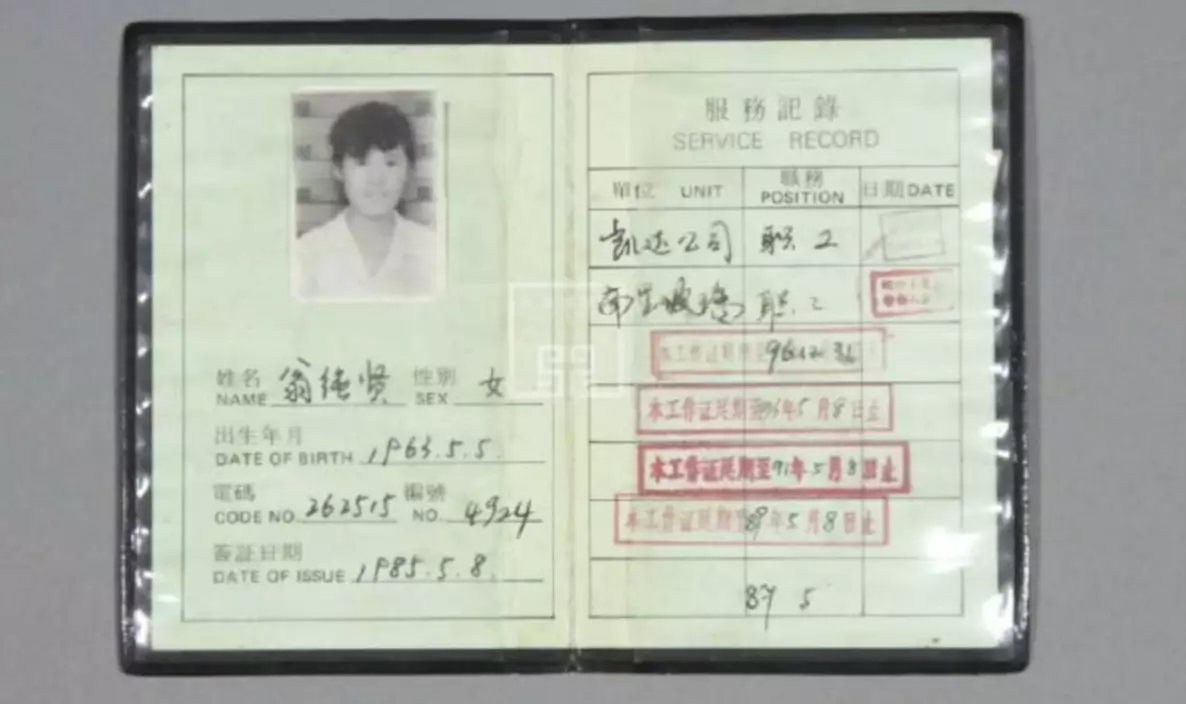 姓名 翁纯贤 性別 女
NAME SEX
出生年月
DATE OF BIRTH 1963.5.5.
電碼 編號
CODE NO. 262515 NO. 4924
簽証日期
DATE OF ISSUE 1985.5.8.
服務記錄
SERVICE RECORD
單位 UNIT 職務 POSITION 日期 DATE
凯达公司 职工
职工
本工作证延期至96.12.31
本工作证延期至 年5月8日止
本工作证延期至91年5月8日止
本工作证延期至89年5月8日止
87 5